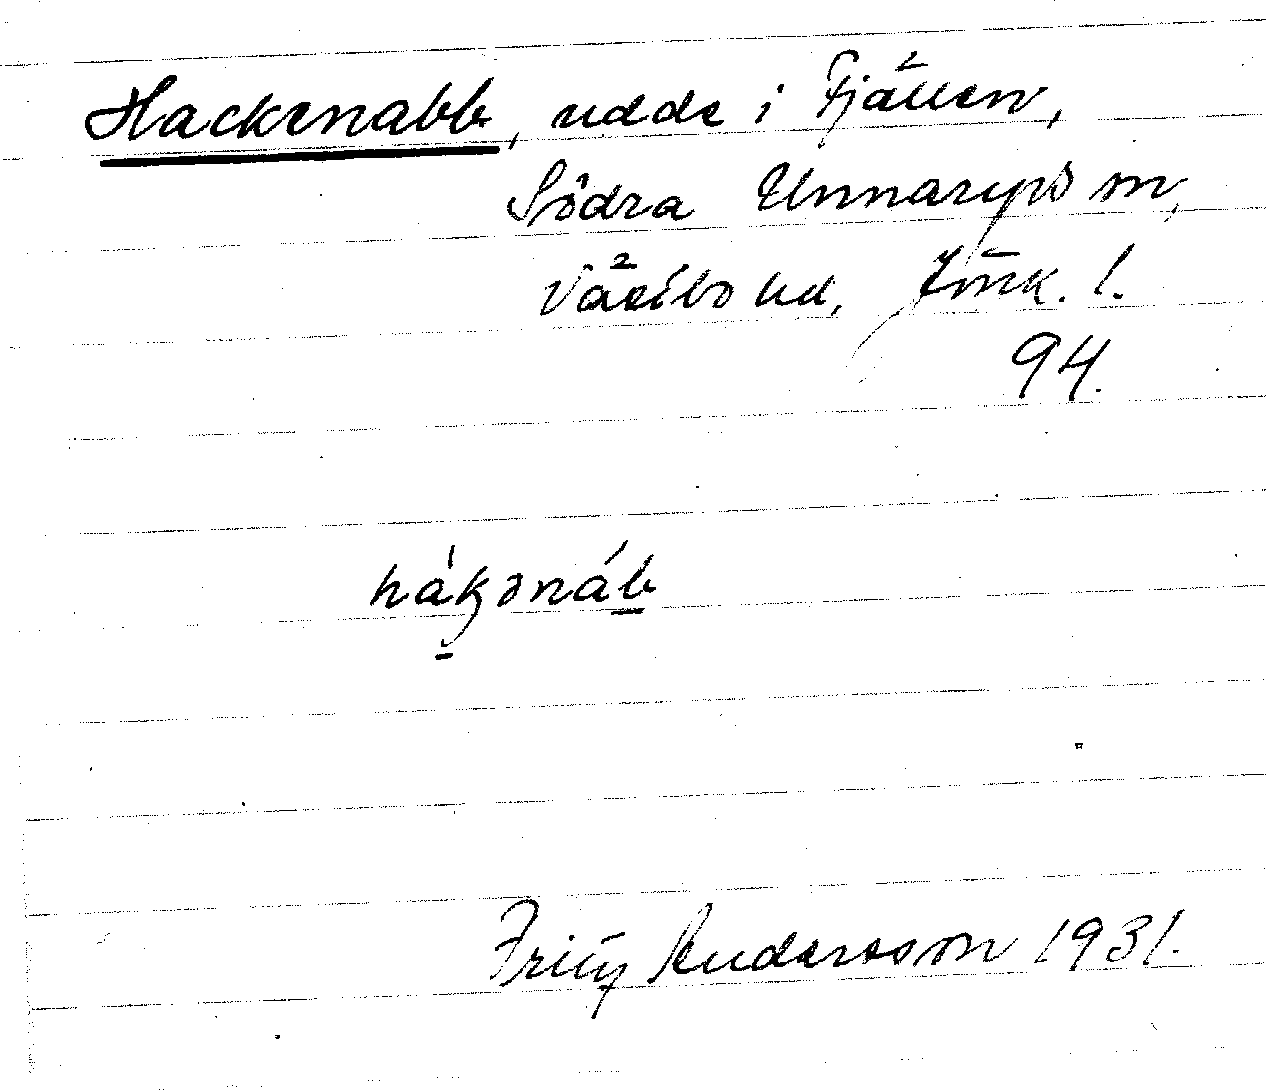 Hackenabb, udde i Fjällen,
Södra Unnaryds sn,
Västbo hd, Jönk. l.
94.
hákənáb
Fritz Andersson 1931.